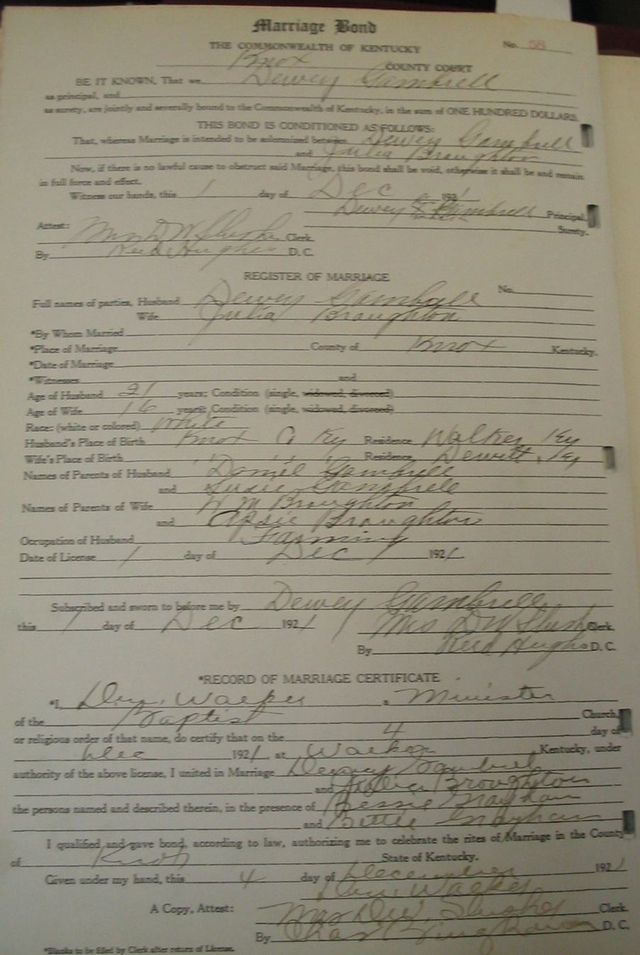 Marriage Bond
THE COMMONWEALTH OF KENTUCKY No. 58
Knox COUNTY COURT
BE IT KNOWN, That we Dewey Gambrell
as principal, and
as surety, are jointly and severally bound to the Commonwealth of Kentucky, in the sum of ONE HUNDRED DOLLARS.
THIS BOND IS CONDITIONED AS FOLLOWS:
That, whereas Marriage is intended to be solemnized between Dewey Gambrell
and Julia Broughton
Now, if there is no lawful cause to obstruct said Marriage, this bond shall be void, otherwise it shall be and remain
in full force and effect.
Witness our hands, this 1 day of Dec 1921
Dewey Gambrell Principal
Surety.
Attest: Mrs D W Slusher Clerk
By Reid Hughes D. C.
REGISTER OF MARRIAGE
No.
Full names of parties, Husband Dewey Gambrell
Wife Julia Broughton
*By Whom Married
*Place of Marriage County of Knox Kentucky.
*Date of Marriage
*Witnesses and
Age of Husband 21 years; Condition (single, widowed, divorced)
Age of Wife 16 years; Condition (single, widowed, divorced)
Race: (white or colored) White
Husband's Place of Birth Knox Co Ky Residence Walker Ky
Wife's Place of Birth " " " Residence Dewitt, Ky
Names of Parents of Husband Daniel Gambrell
and Susie Gambrell
Names of Parents of Wife W M Broughton
and Broughton
Occupation of Husband Farming
Date of License 1 day of Dec 1921
Subscribed and sworn to before me by Dewey Gambrell
this 1 day of Dec 1921 Mrs D W Slusher Clerk
By Reid Hughes D. C.
*RECORD OF MARRIAGE CERTIFICATE
*I, Walker, Minister
of the Baptist Church,
or religious order of that name, do certify that on the 4 day of
Dec 1921 at Walker Kentucky, under
authority of the above license, I united in Marriage Dewey Gambrell
and Julia Broughton
the persons named and described therein, in the presence of Bessie
and
I qualified and gave bond, according to law, authorizing me to celebrate the rites of Marriage in the County
of Knox State of Kentucky.
Given under my hand, this 4 day of December 1921
Walker
A Copy, Attest: Mrs D W Slusher Clerk
By Chas D. C.
*Blanks to be filled by Clerk after return of License.